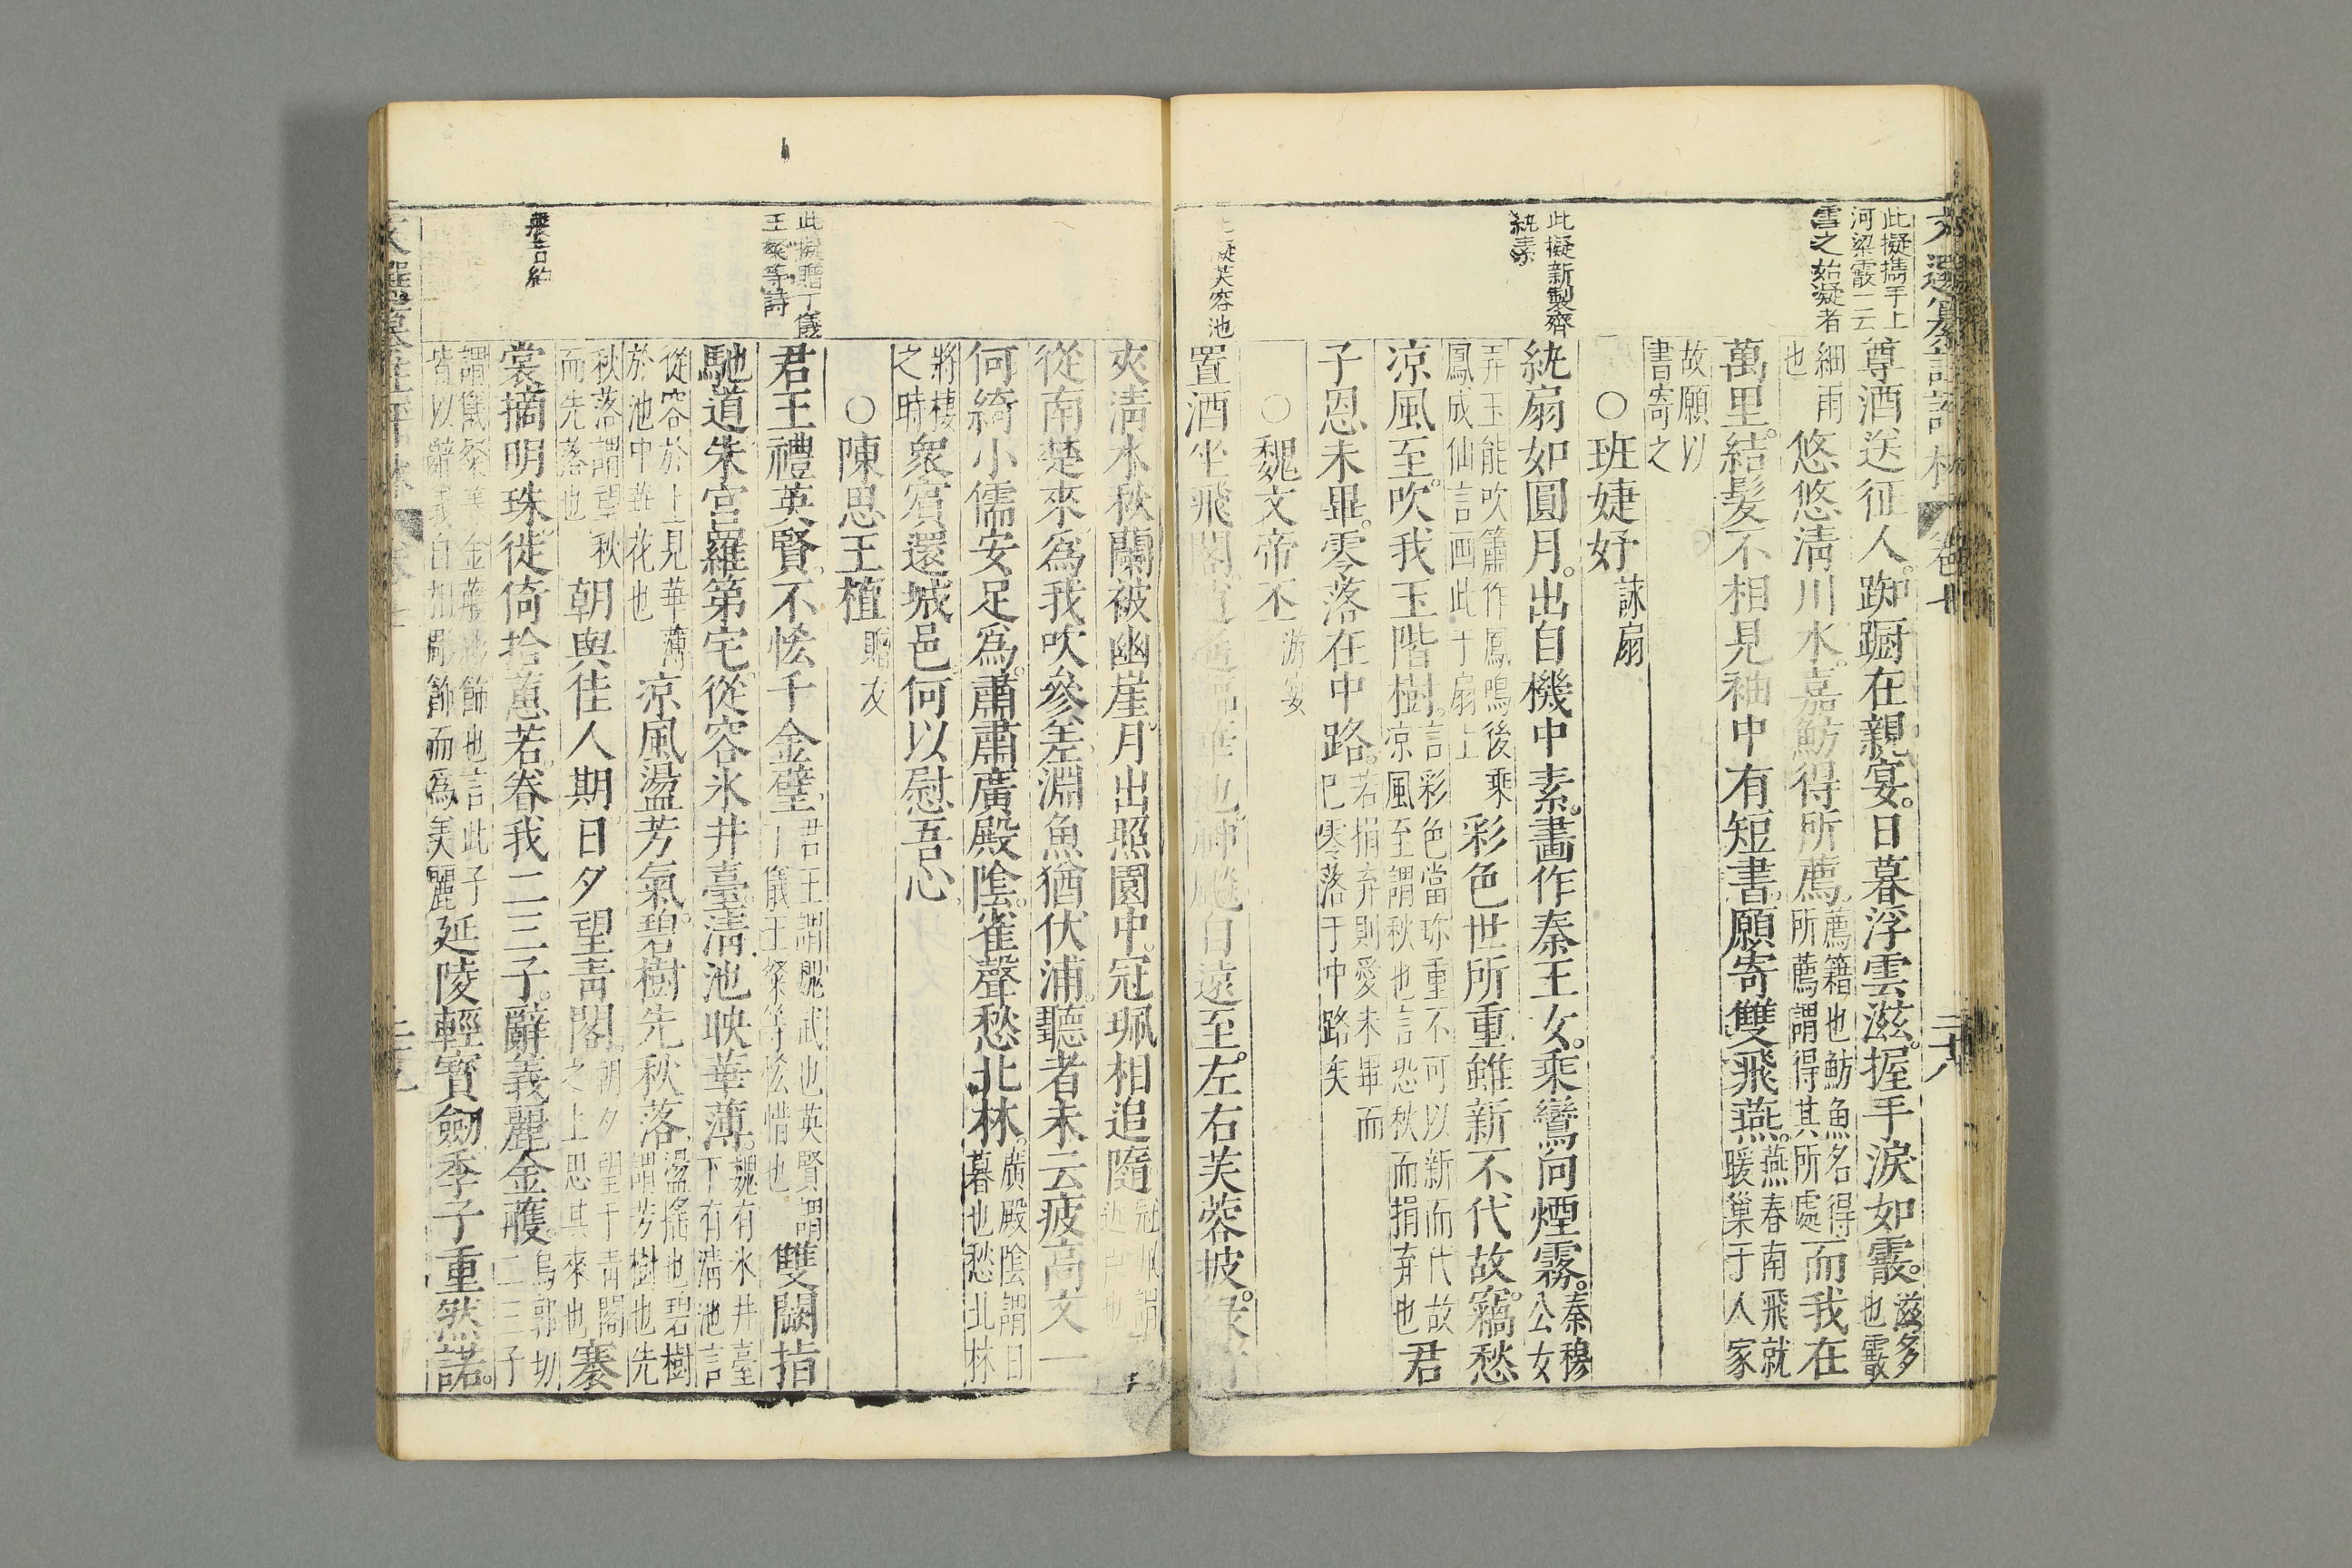 此擬攜手上
河梁霰一云
雪之始凝者
尊酒送征人。踟蹰在親宴。日暮浮雲滋。握手淚如霰。滋多
也霰
細雨
也
悠悠清川水。嘉魴得所薦。薦籍也魴魚名得
所薦謂得其所處
而我在
萬里。結髮不相見袖中有短書。願寄雙飛燕。燕春南飛就
暖巢于人家
故願以
書寄之
○班婕妤詠扇
此擬新製齊
紈素
紈扇如圓月。出自機中素。畵作秦王女。乘鸞向煙霧。秦穆
公女
弄玉能吹簫作鳳鳴後乘
鳳成仙言画此于扇上
彩色世所重雖新不代故。竊愁
凉風至。吹我玉階樹。言彩色當珎重不可以新而代故
凉風至謂秋也言恐秋而捐弃也
君
子恩未畢。零落在中路。若捐弃則愛未畢而
巳零落于中路矣
○魏文帝丕游宴
擬芙容池
置酒坐飛閣自遠至。左右芙蓉披。
爽清水秋蘭被幽崖。月出照園中。冠珮相追隨
從南楚來。爲我吹參差。淵魚猶伏浦。聽者未云疲高文一
何綺小儒安足爲。肅肅廣殿陰。雀聲愁北林。廣殿陰謂日
暮也愁北林
將棲
之時
衆賔還城邑何以慰吾心。
○陳思王植贈友
此擬贈丁儀
王粲等詩
君王禮英賢不恡千金璧。君王謂魏武也英賢謂
丁儀王粲等恡惜也
雙闕指
馳道朱宮羅第宅。從容氷井臺。清池映華薄。魏有氷井臺
下有清池言
從容於上見華薄
於池中華花也
凉風盪芳氣。碧樹先秋落。盪搖也碧樹
謂芳樹也先
秋落謂望秋
而先落也
朝與佳人期。日夕望青閣。朝夕望于青閣
之上思其來也
褰
裳摘明珠徙倚拾蕙若。眷我二三子。辭義麗金雘。烏郭切
二三子
謂儀粲等金雘彩飾也言此子
皆以辭義自相彫飾而爲美麗
延陵輕寳劒季子重然諾。